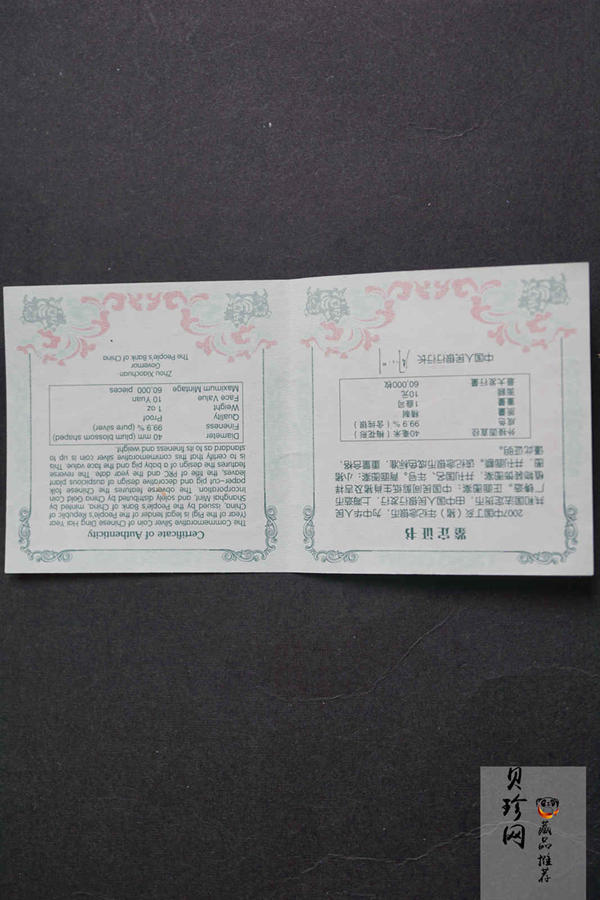 鉴定证书
2007中国丁亥（猪）年纪念银币，为中华人民
共和国法定货币，由中国人民银行发行，上海造币
厂铸造。正面图案：中国民间剪纸生肖猪及吉祥
植物装饰图案，并刊国名、年号。背面图案：小猪
图，并刊面额。该纪念银币成色标准、重量合格，
谨此证明。
外接圆直径 40毫米（梅花形）
成色 99.9%（含纯银）
质量 精制
重量 1盎司
面额 10元
最大发行量 60,000枚
中国人民银行行长
Certificate of Authenticity
The Commemorative Silver Coin of Chinese Ding Hai Year
(Year of the Pig) is legal tender of the People's Republic of
China, issued by the People's Bank of China, minted by
Shanghai Mint and solely distributed by China Gold Coin
Incorporation. The obverse features the Chinese folk
paper-cut pig and decorative design of auspicious plant
leaves, the title of PRC and the year date. The reverse
features the design of a baby pig and the face value. This
is to certify that this commemorative silver coin is up to
standard as to its fineness and weight.
Diameter 40 mm (plum blossom shaped)
Fineness 99.9% (pure silver)
Quality Proof
Weight 1 oz
Face Value 10 Yuan
Maximum Mintage 60,000 pieces
Zhou Xiaochuan
Governor
The People's Bank of China
贝珍网
藏品推荐